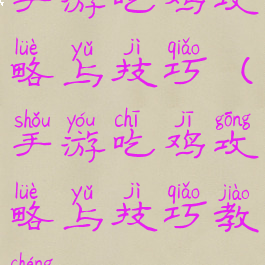 手游吃鸡攻
lüè yǔ jì qiǎo
略与技巧（
shǒu yóu chī jī gōng
手游吃鸡攻
lüè yǔ jì qiǎo jiào
略与技巧教
chéng